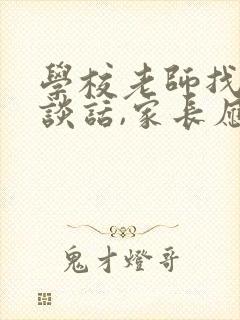 學校老師找
談話,家長應
鬼才燈哥